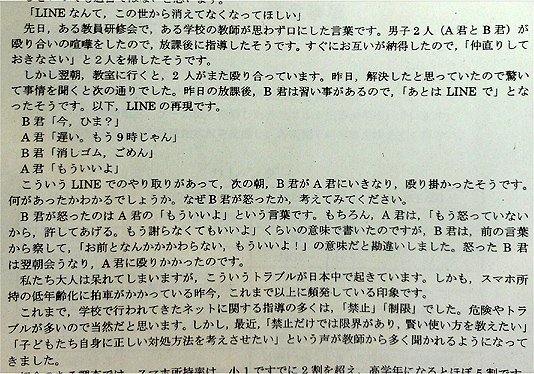 「LINE なんて，この世から消えてなくなってほしい」
先日，ある教員研修会で，ある学校の教師が思わず口にした言葉です。男子2人（A君とB君）が
殴り合いの喧嘩をしたので，放課後に指導したそうです。すぐにお互いが納得したので，「仲直りして
おきなさい」と2人を帰したそうです。
しかし翌朝，教室に行くと，2人がまた殴り合っています。昨日，解決したと思っていたので驚い
て事情を聞くと次の通りでした。昨日の放課後，B君は習い事があるので，「あとは LINE で」とな
ったそうです。以下，LINEの再現です。
B君「今，ひま？」
A君「遅い。もう9時じゃん」
B君「消しゴム，ごめん」
A君「もういいよ」
こういう LINE でのやり取りがあって，次の朝，B君がA君にいきなり，殴り掛かったそうです。
何があったかわかるでしょうか。なぜB君が怒ったか，考えてみてください。
B君が怒ったのはA君の「もういいよ」という言葉です。もちろん，A君は，「もう怒っていない
から，許してあげる。もう謝らなくてもいいよ」くらいの意味で書いたのですが，B君は，前の言葉
から察して，「お前となんかかかわらない，もういいよ！」の意味だと勘違いしました。怒った B君
は翌朝会うなり，A君に殴りかかったのです。
私たち大人は呆れてしまいますが，こういうトラブルが日本中で起きています。しかも，スマホ所
持の低年齢化に拍車がかかっている昨今，これまで以上に頻発している印象です。
これまで，学校で行われてきたネットに関する指導の多くは，「禁止」「制限」でした。危険やトラ
ブルが多いので当然だと思います。しかし，最近，「禁止だけでは限界があり，賢い使い方を教えたい」
「子どもたち自身に正しい対処方法を考えさせたい」という声が教師から多く聞かれるようになって
きました。
スマホ所持率は，小1ですでに2割を超え，高学年になるとほぼ5割です